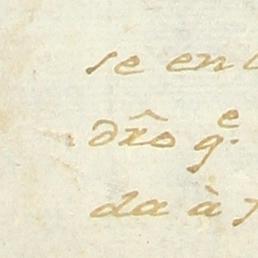 se en
dr̃o q.e
da à